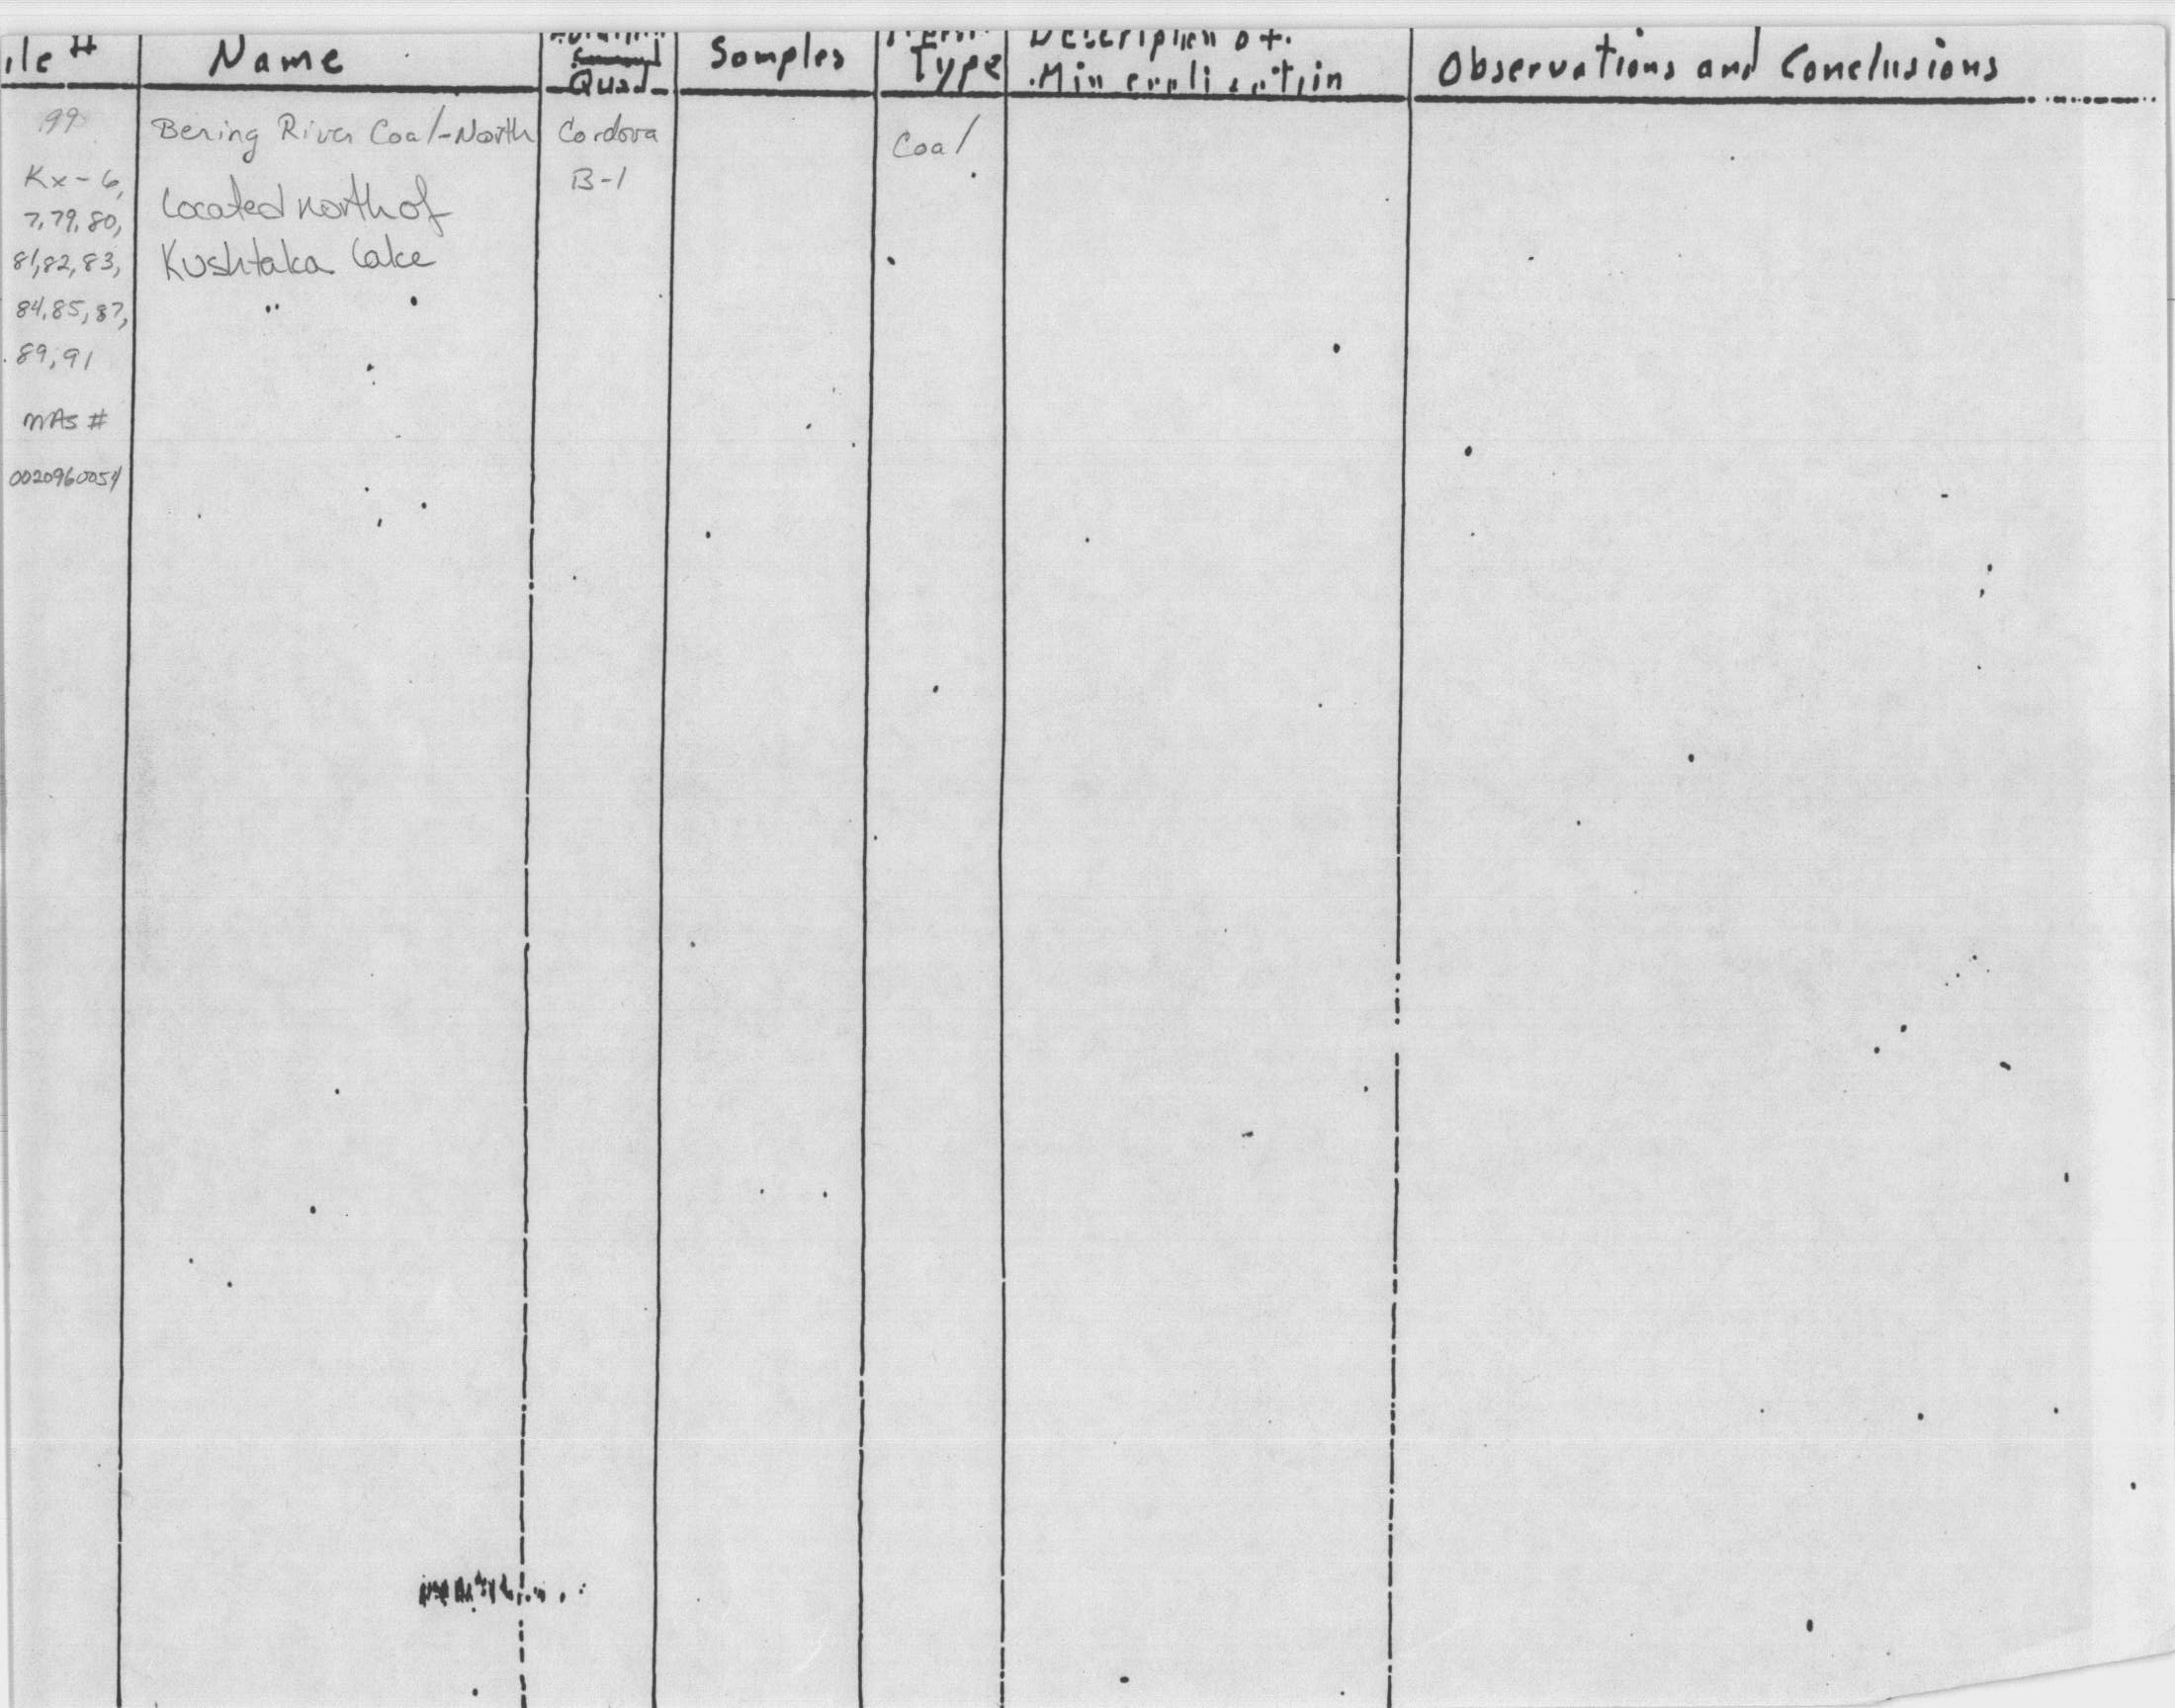 ile # Name Quad Samples Type Description of Mineralization Observations and Conclusions
99 Bering River Coal-North Cordova Coal
Kx-6, B-1
7,79,80, Located north of
81,82,83, Kushtaka Lake
84,85,87,
89,91
MAS #
0020960054